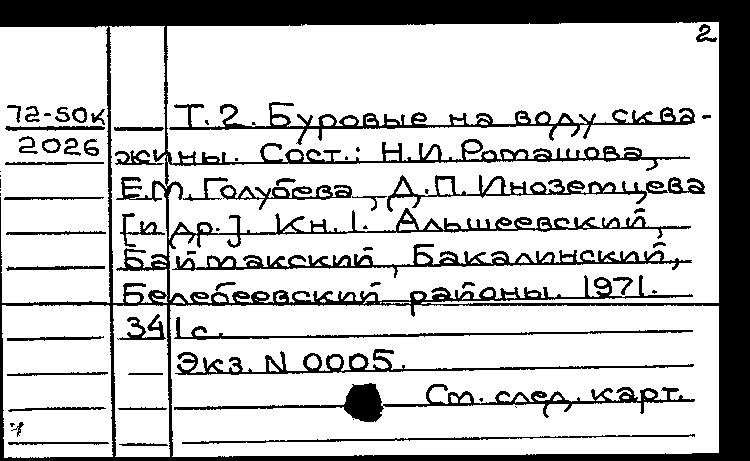 2
72-50к Т.2. Буровые на воду сква-
2026 жины. Сост.: Н.И. Ромашова,
Е.М. Голубева, Д.П. Иноземцева
[и др.]. Кн.1. Альшеевский,
Баймакский, Бакалинский,
Белебеевский районы. 1971.
341с.
Экз. N 0005.
См. след. карт.